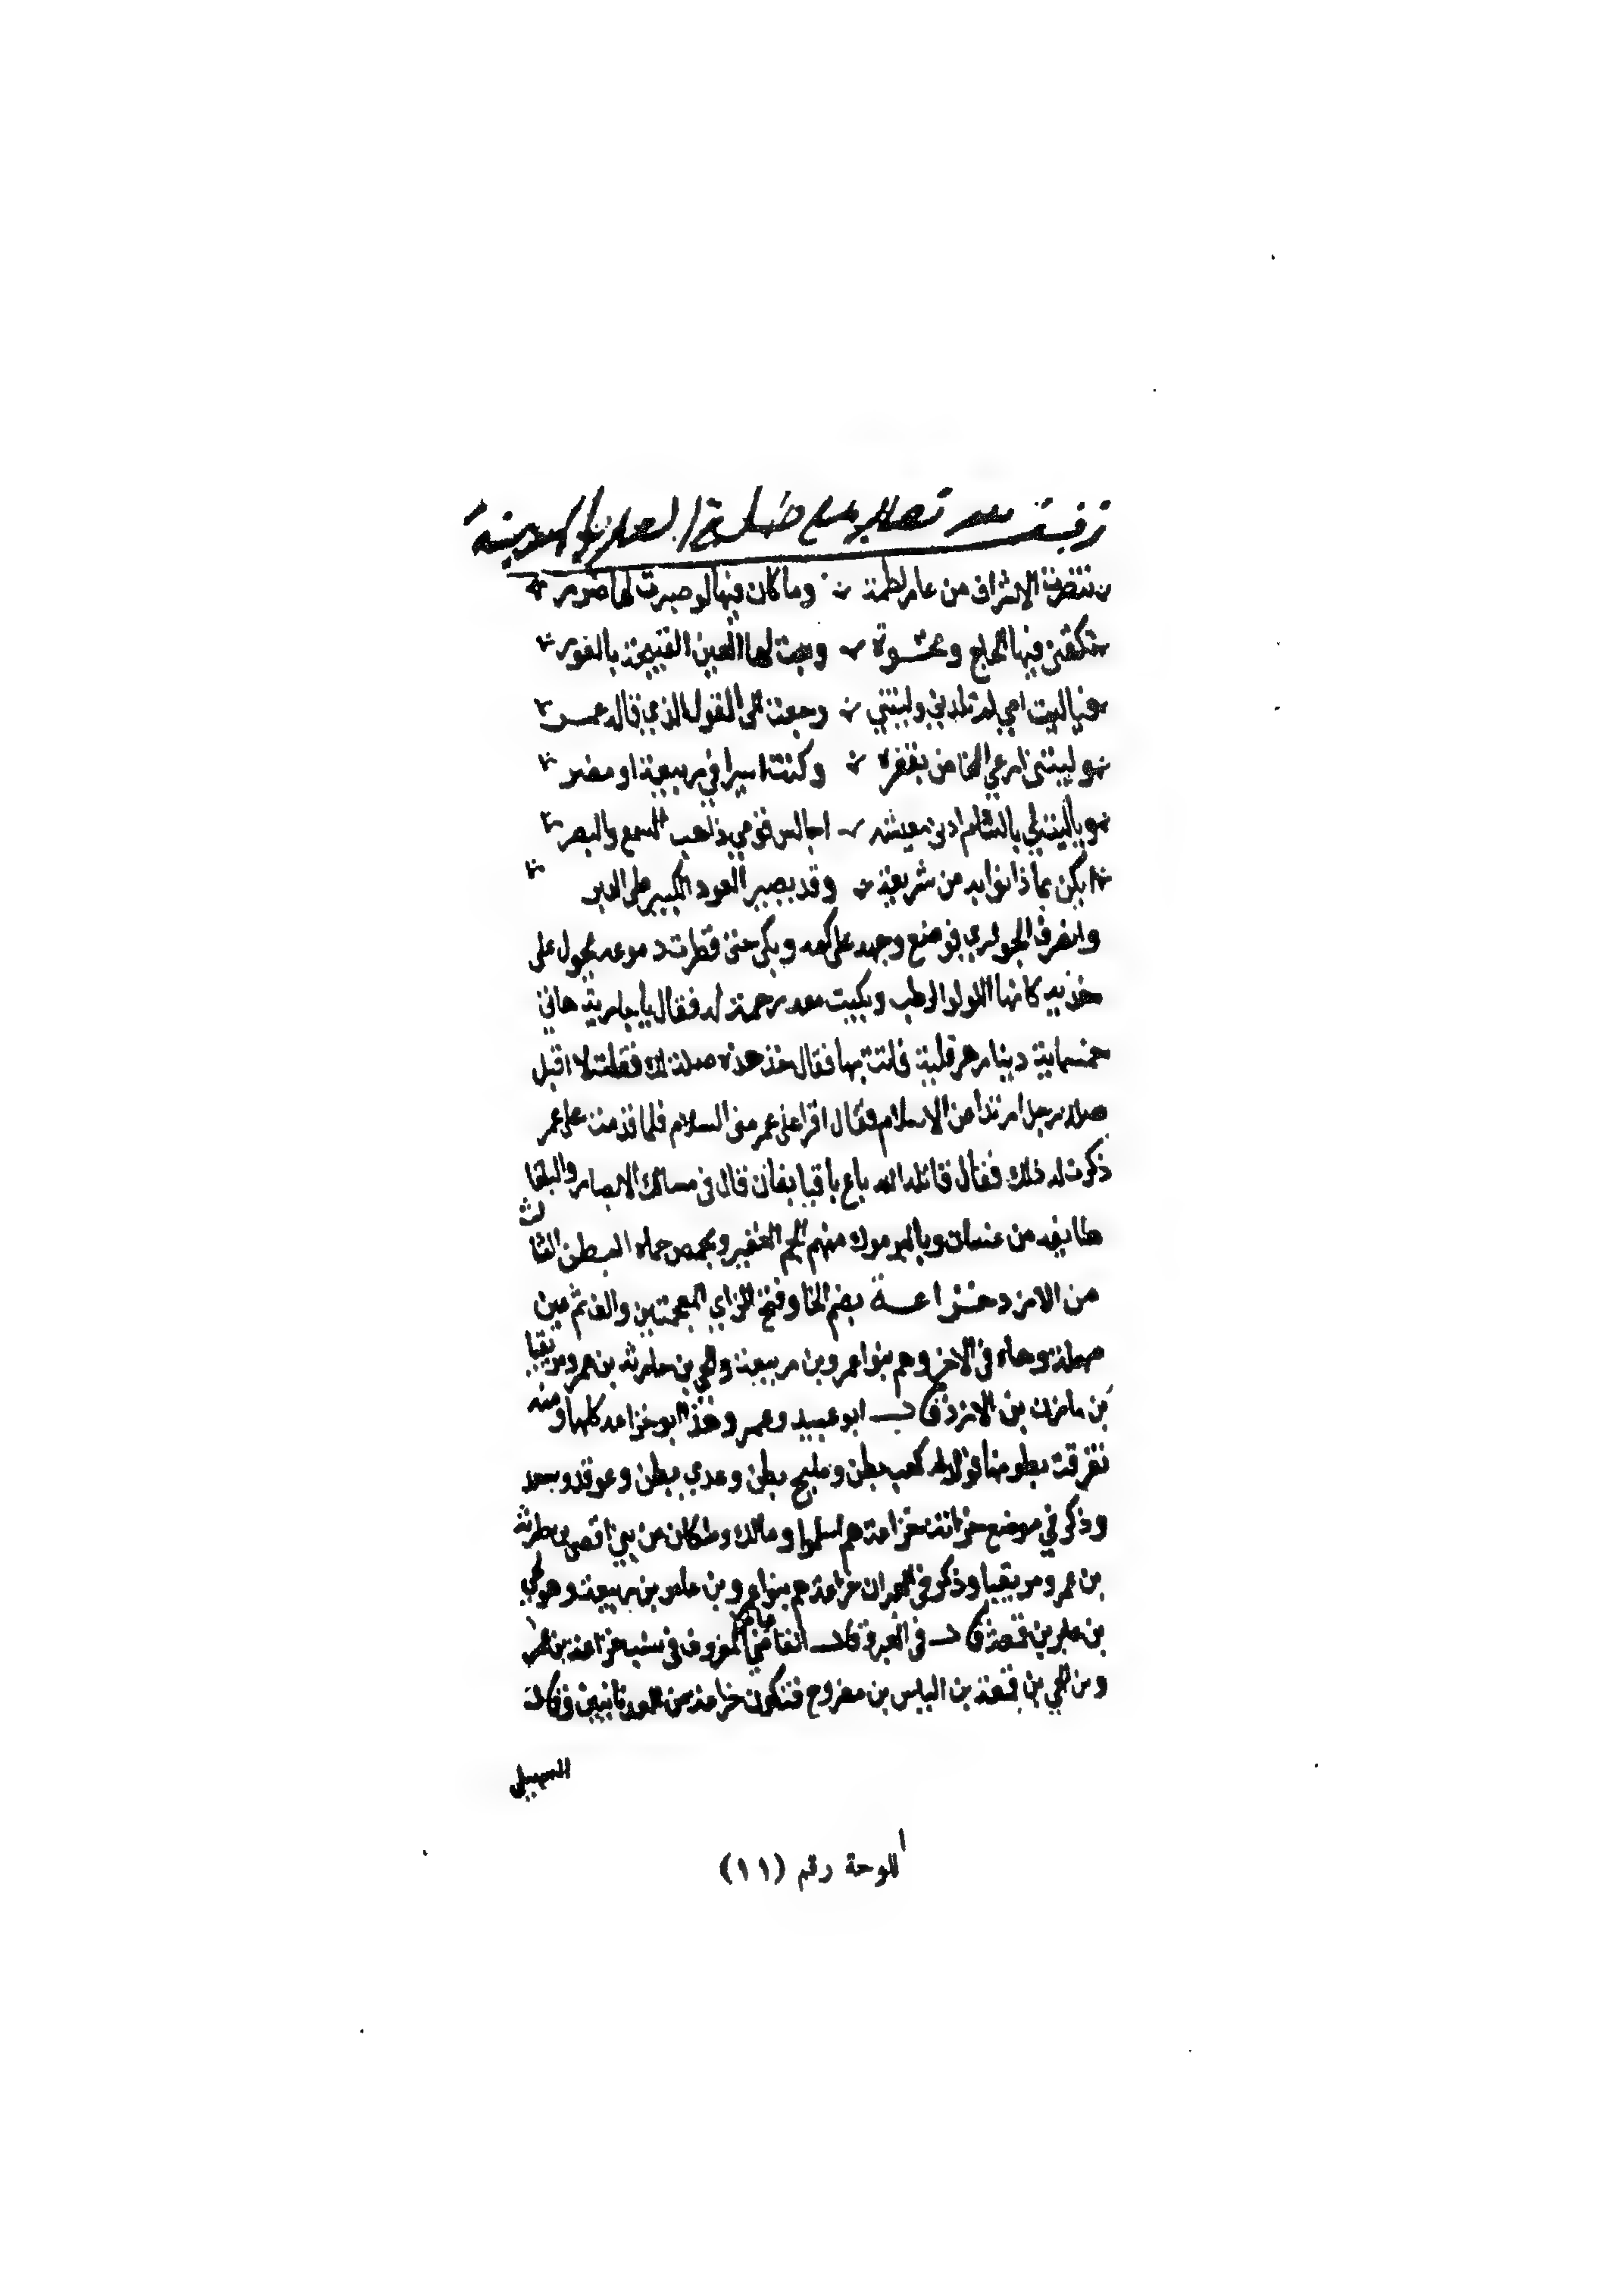 تنصرت الاشراف من عار لطمة وما كان فيها لو صبرت لها ضرر
تكنفني فيها لجاج ونخوة وبعت لها العين الصحيحة بالعور
فياليت امي لم تلدني وليتني رجعت الى القول الذي قاله عمر
وليتني ارعي المخاض بقفرة وكنت اسيرا في ربيعة او مضر
وياليت لي بالشام ادنى معيشه اجالس قومي ذاهب السمع والبصر
من شريعة وقد يصبر العود الكبير على الدبر
وانصرف الجواري فوضع وجهه على كمه وبكى حتى قطرت دموعه تجول على
خديه كانها اللولو الرطب وبكيت معه رحمة له فقال ياجارية هاتي
خمسماية دينار هرقلية فاتت بها فقال خذ هذه صلة لك فقلت لا اقبل
صلة رجل ارتد عن الاسلام فقال اقرا على عمر مني السلام فلما قدمت على عمر
ذكرت له ذلك فقال قاتله الله باع باقيا بفان قال في مسالك الابصار والبلقا
طايفه من غسان وباليرموك منهم الجم الغفير وبحمص حماه البطن الثالث
من الازد خزاعة بضم الخا وفتح الزاي المعجمتين والف ثم عين
مهملة وهاء في الاخر وهم بنوا عمرو بن ربيعة ولحي بن حارثه بن عمرو مزيقيا
بن مازن بن الازد قال ابو عبيد وعمرو هذا ابو خزاعه كلها ومنه
تفرقت بطونها فولد كعب بطن ومليح بطن وعدي بطن وعوف وسعد
وذكر في موضع خزاعة هم اسلم ومالك وملكان من بني اقصى بن حارثه
بن عمرو مزيقيا وذكر في خزاعة هم بنوا عمرو بن عامر بن ربيعة وهو لحي
بن عامر بن قمعة قال في العبر وقال القاضي المعروف في نسب خزاعة بن عمرو
بن لحي بن قمعة بن الياس بن مضر فتكون خزاعة من العدنانيين وقال
السهيلي
اللوحة رقم (١١)